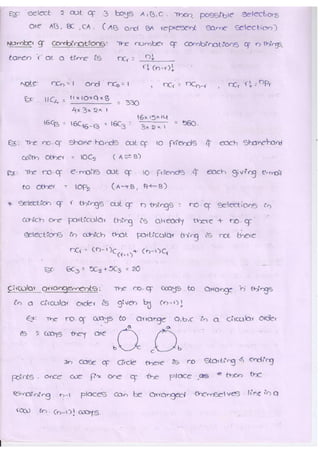 Eg: select 2 out of 3 boys A,B,C. Then possible selections
are AB, BC, CA. (AB and BA represent same selection)
Number of combinations: The number of combinations of n things,
taken r at a time is nCr = n! / r! (n-r)!
Note: nCn = 1 and nC0 = 1 , nCr = nCn-r , nCr r! = nPr
Ex: 11C4 = 11×10×9×8 / 4×3×2×1 = 330
16C13 = 16C16-13 = 16C3 = 16×15×14 / 3×2×1 = 560.
Ex: The no. of shake hands out of 10 friends if each shakehand
with other = 10C2 (A⇌B)
Ex: The no. of e-mails out of 10 friends if each giving e-mail
to other = 10P2 (A→B, A←B)
* selection of r things out of n things = no of selections in
which one particular thing is already there + no of
selections in which that particular thing is not there
nCr = (n-1)C(r-1) + (n-1)Cr
Ex: 6C3 = 5C2 + 5C3 = 20
Circular arrangements: The no. of ways to arrange 'n' things
in a circular order is given by (n-1)!
Ex: The no of ways to arrange a,b,c in a circular order
is 2 ways they are
a a
b c c b
In case of circle there is no starting & ending
points. once we fix one of the place as * then the
remaining n-1 places can be arranged themselves like in a
row in (n-1)! ways.